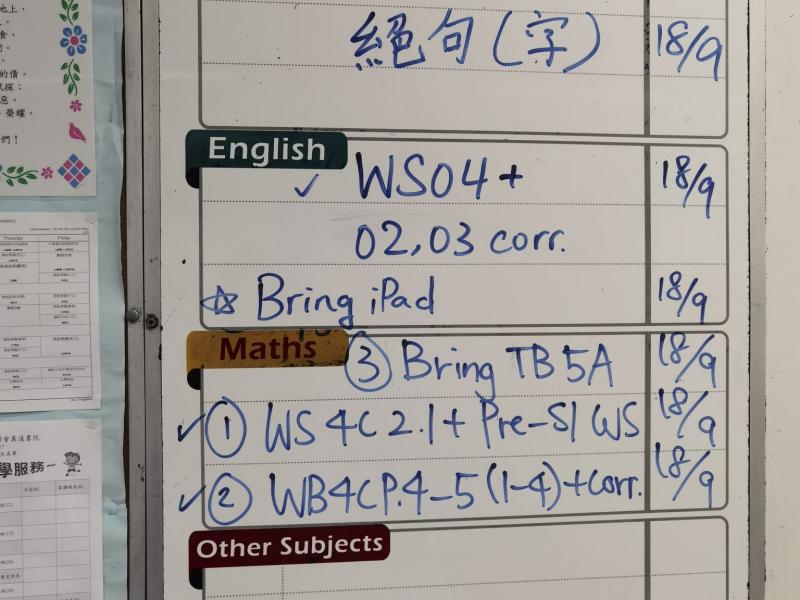 絕句(字) 18/9
English
✓ WS04+ 18/9
02,03 corr.
☆ Bring iPad 18/9
Maths
③ Bring TB 5A 18/9
✓ ① WS 4C 2.1 + Pre-S1 WS 18/9
✓ ② WB4C P.4-5 (1-4) + corr. 18/9
Other Subjects
Thursday Friday
學服務~